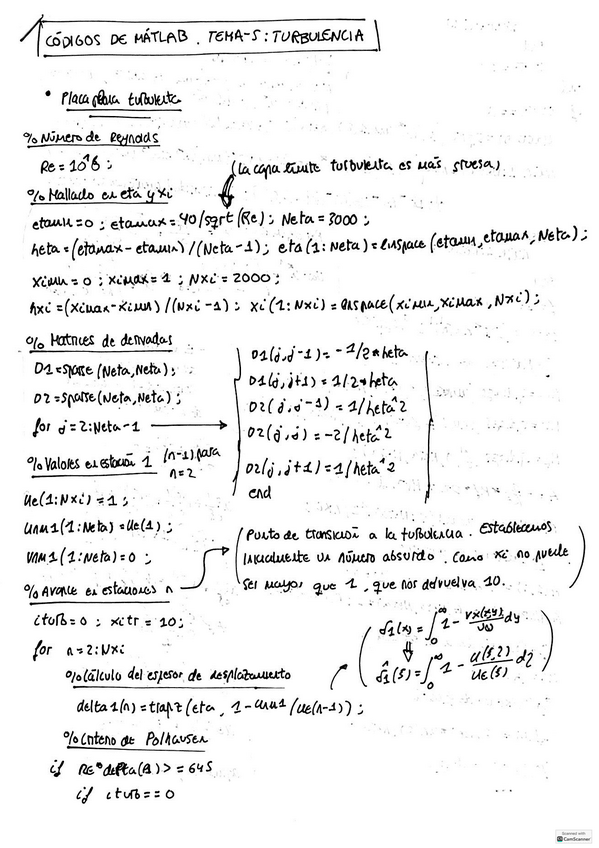 CÓDIGOS DE MÁTLAB. TEMA-5: TURBULENCIA
• Placa plana turbulenta
% Número de Reynolds
Re = 10^6;
(La capa límite turbulenta es más gruesa)
% Mallado en eta y xi
etamin = 0; etamax = 40/sqrt(Re); Neta = 3000;
heta = (etamax-etamin)/(Neta-1); eta(1:Neta) = linspace(etamin,etamax,Neta);
ximin = 0; ximax = 1; Nxi = 2000;
hxi = (ximax-ximin)/(Nxi-1); xi(1:Nxi) = linspace(ximin,ximax,Nxi);
% Matrices de derivadas
D1 = sparse(Neta,Neta);
D2 = sparse(Neta,Neta);
for j = 2:Neta-1
D1(j,j-1) = -1/2*heta
D1(j,j+1) = 1/2*heta
D2(j,j-1) = 1/heta^2
D2(j,j) = -2/heta^2
D2(j,j+1) = 1/heta^2
end
% Valores en estación 1 (n-1) para n=2
Ue(1:Nxi) = 1;
Unm1(1:Neta) = Ue(1);
Vnm1(1:Neta) = 0;
(Punto de transición a la turbulencia. Establecemos
inicialmente un número absurdo. Como xi no puede
ser mayor que 1, que nos devuelva 10.)
% Avance en estaciones n
iturb = 0; xitr = 10;
for n = 2:Nxi
δ1(x) = ∫0^∞ 1 - vx(x,y)/U∞ dy
δ̂1(ξ) = ∫0^∞ 1 - u(ξ,η)/ue(ξ) dη
% Cálculo del espesor de desplazamiento
delta1(n) = trapz(eta, 1-unm1/ue(n-1));
% Criterio de Polhausen
if Re*delta(n) >= 645
if iturb == 0
Scanned with
CamScanner